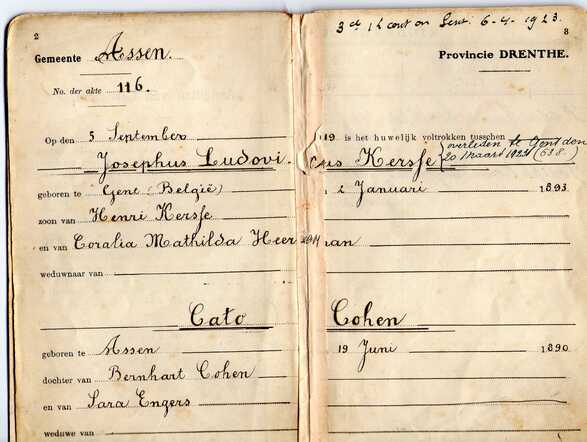 2
3
3 cd 1 k cout on Gent. 6-4-1923.
Gemeente Assen.
Provincie DRENTHE.
No. der akte 116.
Op den 5 September 1919 is het huwelijk voltrokken tusschen
Josephus Ludovicus Kersse
overleden te Gent den
20 maart 1923 (638)
geboren te Gent (België) 2 Januari 1893
zoon van Henri Kersse
en van Coralia Mathilda Heerman
weduwnaar van
Cato Cohen
geboren te Assen 19 Juni 1890
dochter van Bernhart Cohen
en van Sara Engers
weduwe van